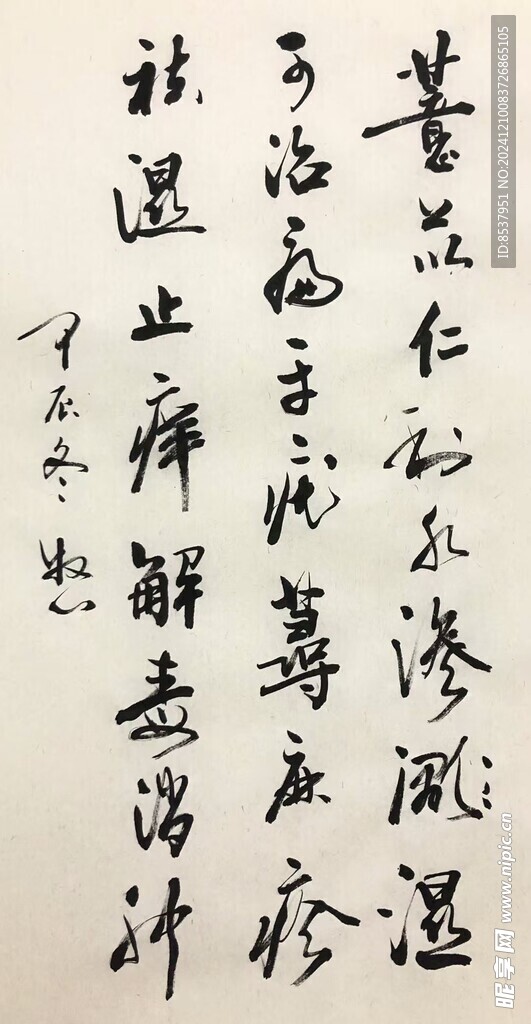 薏苡仁利水滲濕
可治扁平疣蕁麻疹
祛濕止痒解毒消肿
甲辰冬
ID:8537951 NO:20241210083726865105
昵享网 www.nipic.cn